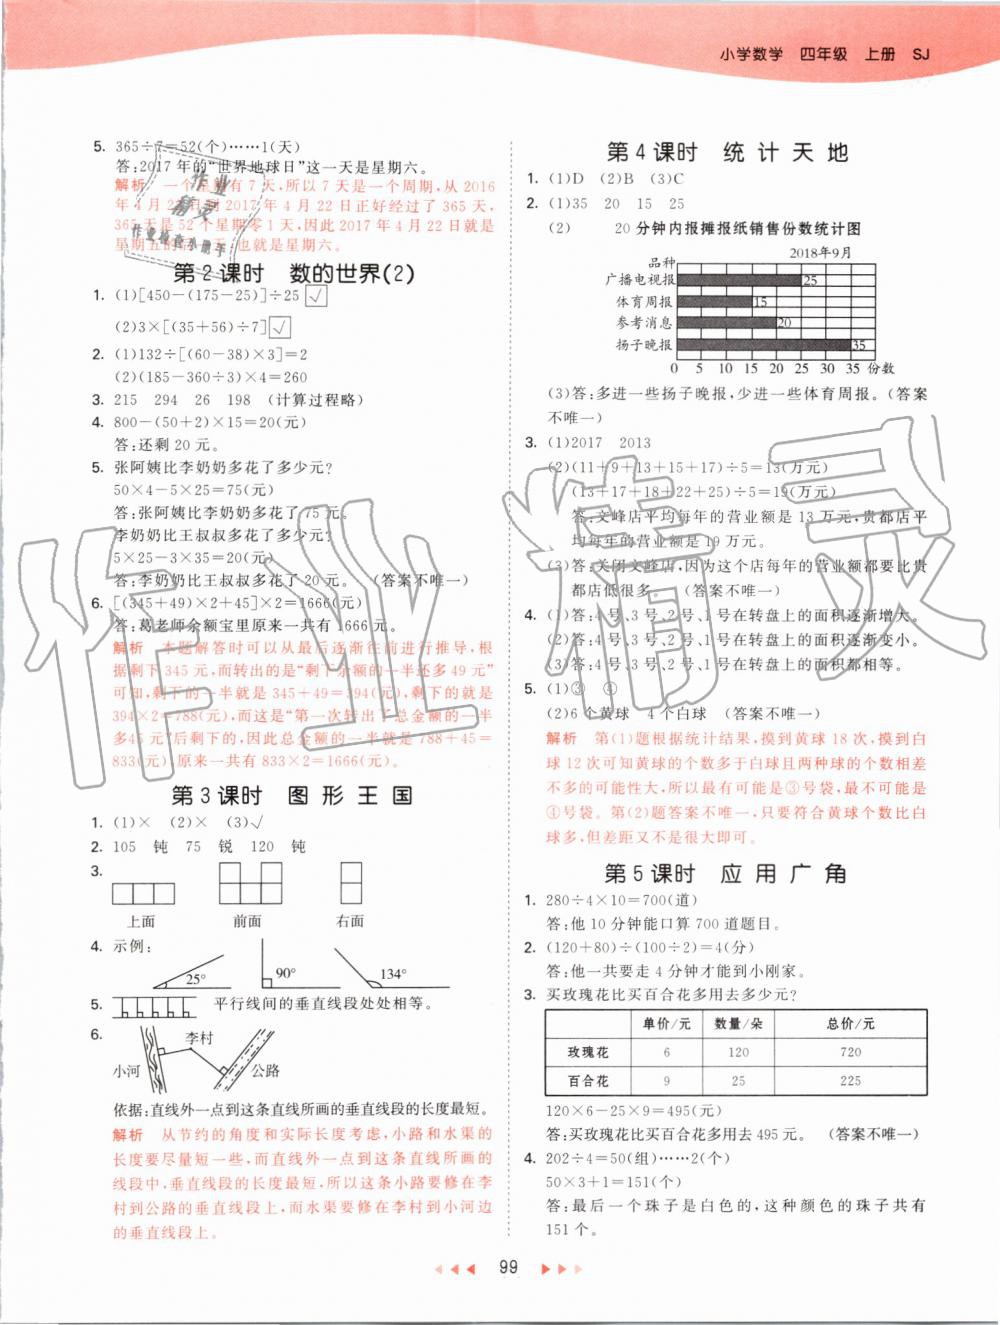 小学数学 四年级 上册 SJ
5. 365÷7=52(个)……1(天)
答:2017年的“世界地球日”这一天是星期六。
解析 一个星期有7天,所以7天是一个周期,从2016
年4月22日到2017年4月22日正好经过了365天,
365天是52个星期零1天,因此2017年4月22日就是
星期五的后一天,也就是星期六。
第2课时 数的世界(2)
1. (1)[450-(175-25)]÷25 √
(2)3×[(35+56)÷7] √
2. (1)132÷[(60-38)×3]=2
(2)(185-360÷3)×4=260
3. 215 294 26 198 (计算过程略)
4. 800-(50+2)×15=20(元)
答:还剩20元。
5. 张阿姨比李奶奶多花了多少元?
50×4-5×25=75(元)
答:张阿姨比李奶奶多花了75元。
李奶奶比王叔叔多花了多少元?
5×25-3×35=20(元)
答:李奶奶比王叔叔多花了20元。 (答案不唯一)
6. [(345+49)×2+45]×2=1666(元)
答:葛老师余额宝里原来一共有1666元。
解析 本题解答时可以从最后逐渐往前进行推导,根
据剩下345元,而转出的是“剩下余额的一半还多49元”
可知,剩下的一半就是345+49=394(元),剩下的就是
394×2=788(元),而这是“第一次转出了总金额的一半
多45元”后剩下的,因此总金额的一半是788+45=
833(元),原来一共有833×2=1666(元)。
第3课时 图形王国
1. (1)× (2)× (3)√
2. 105 钝 75 锐 120 钝
3.
上面 前面 右面
4. 示例:
25° 90° 134°
5. 平行线间的垂直线段处处相等。
6.
李村
小河 公路
依据:直线外一点到这条直线所画的垂直线段的长度最短。
解析 从节约的角度和实际长度考虑,小路和水渠的
长度要尽量短一些,而直线外一点到这条直线所画的
线段中,垂直线段的长度最短,所以这条小路要修在李
村到公路的垂直线段上,而水渠要修在李村到小河边
的垂直线段上。
第4课时 统计天地
1. (1)D (2)B (3)C
2. (1)35 20 15 25
(2) 20分钟内报摊报纸销售份数统计图
2018年9月
品种
广播电视报 25
体育周报 15
参考消息 20
扬子晚报 35
0 5 10 15 20 25 30 35 份数
(3)答:多进一些扬子晚报,少进一些体育周报。(答案
不唯一)
3. (1)2017 2013
(2)(11+9+13+15+17)÷5=13(万元)
(13+17+18+22+25)÷5=19(万元)
答:文峰店平均每年的营业额是13万元,贵都店平
均每年的营业额是19万元。
(3)答:关闭文峰店,因为这个店每年的营业额都要比贵
都店低很多。 (答案不唯一)
4. (1)答:4号、3号、2号、1号在转盘上的面积逐渐增大。
(2)答:4号、3号、2号、1号在转盘上的面积逐渐变小。
(3)答:4号、3号、2号、1号在转盘上的面积都相等。
5. (1)③ ④
(2)6个黄球 4个白球 (答案不唯一)
解析 第(1)题根据统计结果,摸到黄球18次,摸到白
球12次可知黄球的个数多于白球且两种球的个数相差
不多的可能性大,所以最有可能是③号袋,最不可能是
④号袋。第(2)题答案不唯一,只要符合黄球个数比白
球多,但差距又不是很大即可。
第5课时 应用广角
1. 280÷4×10=700(道)
答:他10分钟能口算700道题目。
2. (120+80)÷(100÷2)=4(分)
答:他一共要走4分钟才能到小刚家。
3. 买玫瑰花比买百合花多用去多少元?
单价/元 数量/朵 总价/元
玫瑰花 6 120 720
百合花 9 25 225
120×6-25×9=495(元)
答:买玫瑰花比买百合花多用去495元。 (答案不唯一)
4. 202÷4=50(组)……2(个)
50×3+1=151(个)
答:最后一个珠子是白色的,这种颜色的珠子共有
151个。
99
作业精灵
作业精灵
作业检查小助手